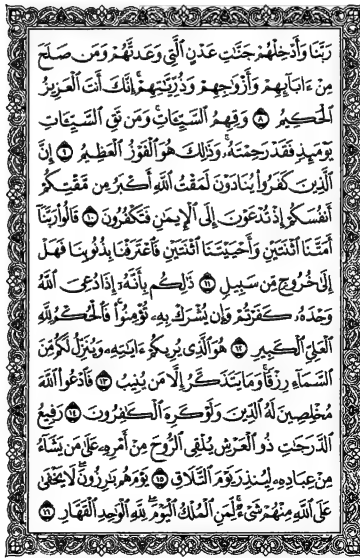 رَبَّنَا وَأَدْخِلْهُمْ جَنَّٰتِ عَدْنٍ ٱلَّتِى وَعَدتَّهُمْ وَمَن صَلَحَ
مِنْ ءَابَآئِهِمْ وَأَزْوَٰجِهِمْ وَذُرِّيَّٰتِهِمْ إِنَّكَ أَنتَ ٱلْعَزِيزُ
ٱلْحَكِيمُ ٨ وَقِهِمُ ٱلسَّيِّـَٔاتِ وَمَن تَقِ ٱلسَّيِّـَٔاتِ
يَوْمَئِذٍ فَقَدْ رَحِمْتَهُۥ وَذَٰلِكَ هُوَ ٱلْفَوْزُ ٱلْعَظِيمُ ٩ إِنَّ
ٱلَّذِينَ كَفَرُوا۟ يُنَادَوْنَ لَمَقْتُ ٱللَّهِ أَكْبَرُ مِن مَّقْتِكُمْ
أَنفُسَكُمْ إِذْ تُدْعَوْنَ إِلَى ٱلْإِيمَٰنِ فَتَكْفُرُونَ ١٠ قَالُوا۟ رَبَّنَآ
أَمَتَّنَا ٱثْنَتَيْنِ وَأَحْيَيْتَنَا ٱثْنَتَيْنِ فَٱعْتَرَفْنَا بِذُنُوبِنَا فَهَلْ
إِلَىٰ خُرُوجٍ مِّن سَبِيلٍ ١١ ذَٰلِكُم بِأَنَّهُۥٓ إِذَا دُعِىَ ٱللَّهُ
وَحْدَهُۥ كَفَرْتُمْ وَإِن يُشْرَكْ بِهِۦ تُؤْمِنُوا۟ فَٱلْحُكْمُ لِلَّهِ
ٱلْعَلِىِّ ٱلْكَبِيرِ ١٢ هُوَ ٱلَّذِى يُرِيكُمْ ءَايَٰتِهِۦ وَيُنَزِّلُ لَكُم مِّنَ
ٱلسَّمَآءِ رِزْقًا وَمَا يَتَذَكَّرُ إِلَّا مَن يُنِيبُ ١٣ فَٱدْعُوا۟ ٱللَّهَ
مُخْلِصِينَ لَهُ ٱلدِّينَ وَلَوْ كَرِهَ ٱلْكَٰفِرُونَ ١٤ رَفِيعُ
ٱلدَّرَجَٰتِ ذُو ٱلْعَرْشِ يُلْقِى ٱلرُّوحَ مِنْ أَمْرِهِۦ عَلَىٰ مَن يَشَآءُ
مِنْ عِبَادِهِۦ لِيُنذِرَ يَوْمَ ٱلتَّلَاقِ ١٥ يَوْمَ هُم بَٰرِزُونَ لَا يَخْفَىٰ
عَلَى ٱللَّهِ مِنْهُمْ شَىْءٌ لِّمَنِ ٱلْمُلْكُ ٱلْيَوْمَ لِلَّهِ ٱلْوَٰحِدِ ٱلْقَهَّارِ ١٦